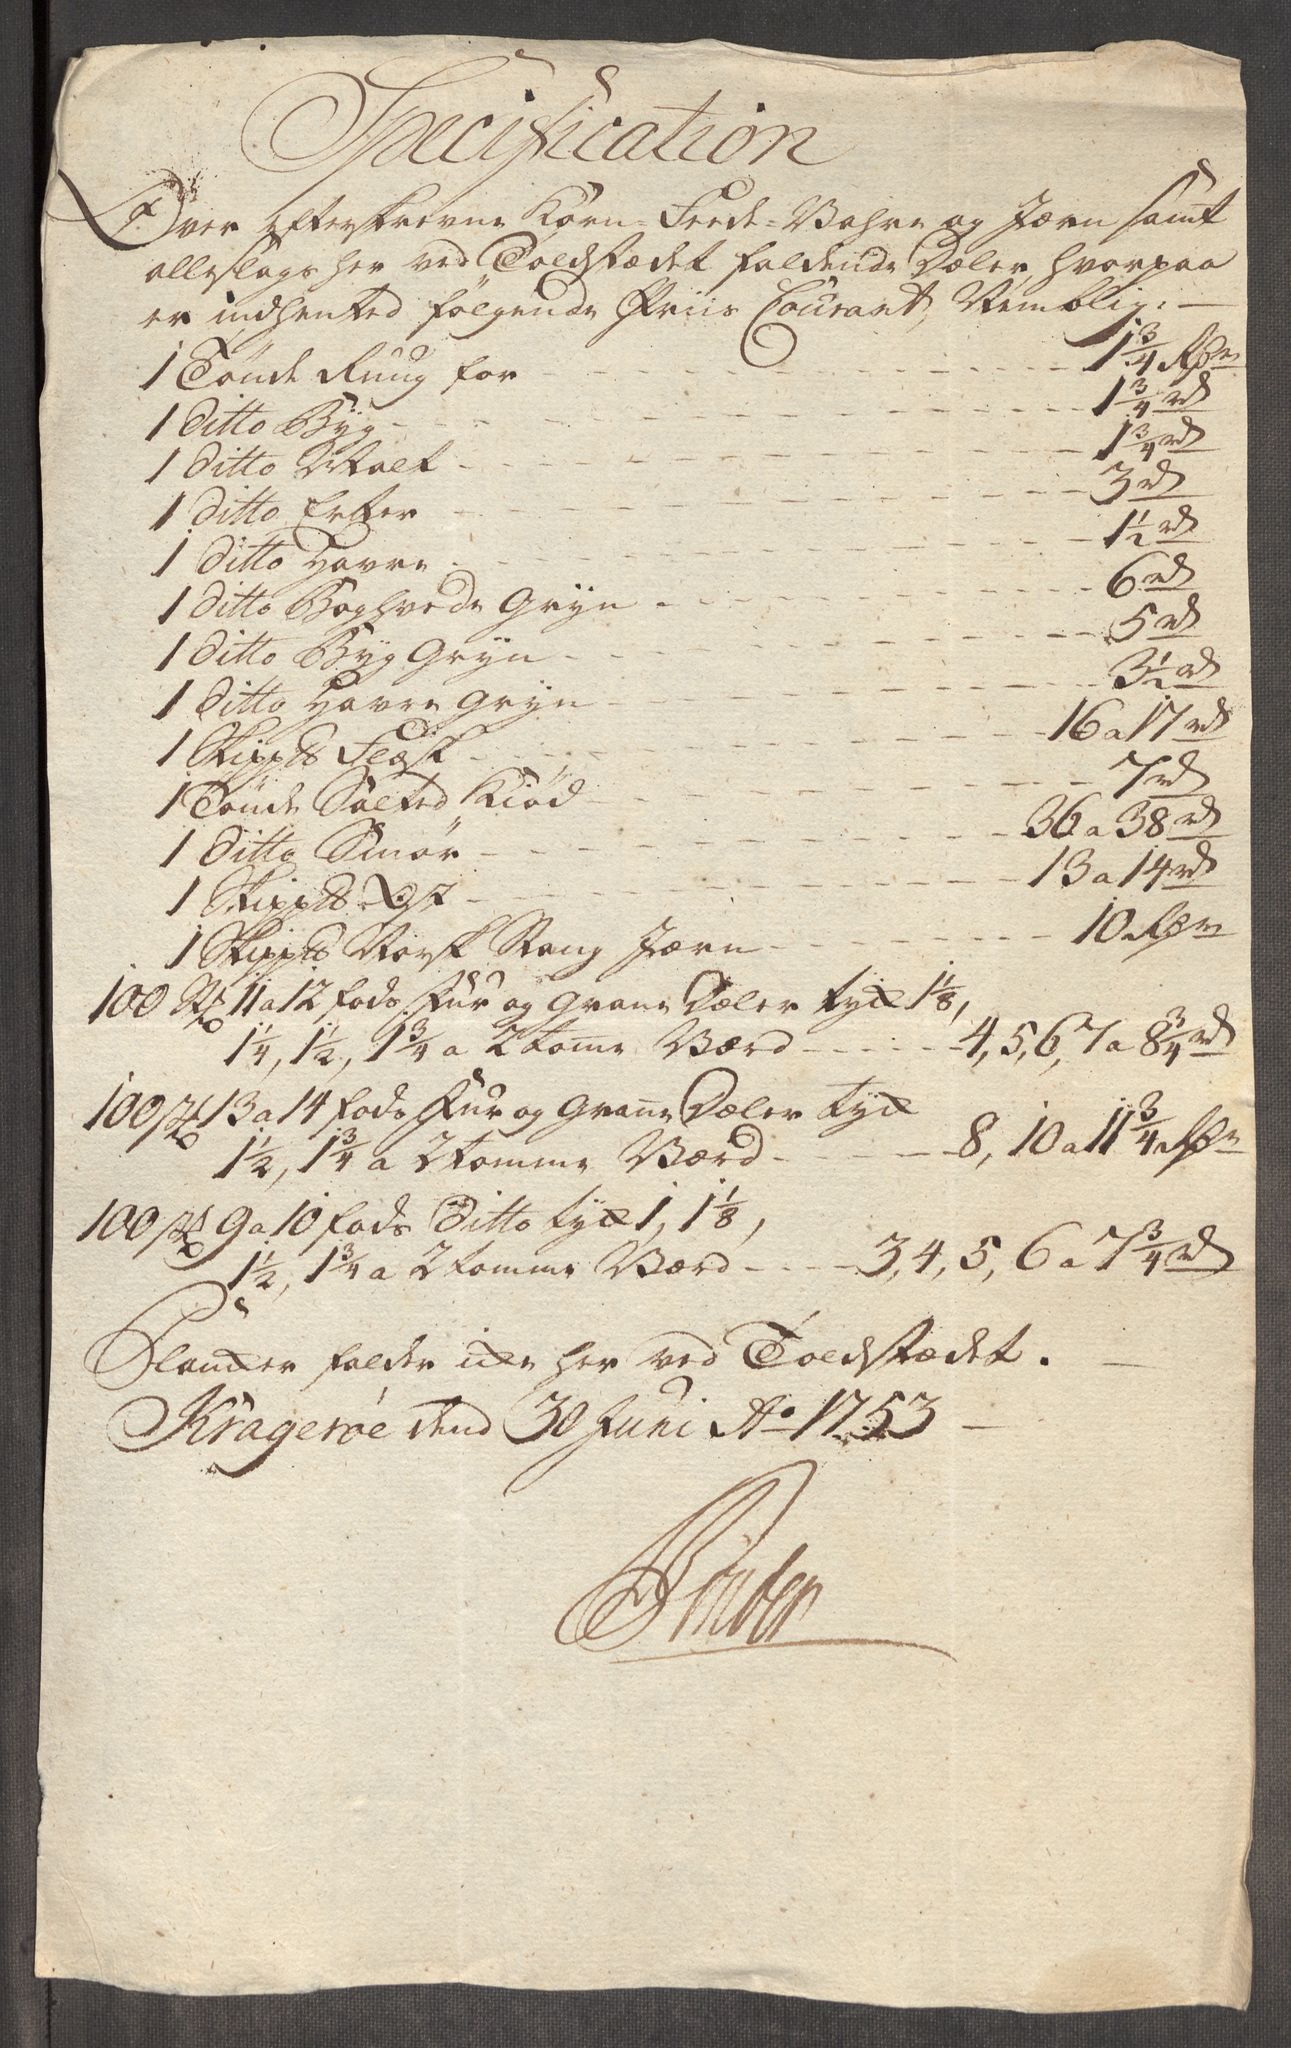 Specification
Over efterskrevne Korn- Feede- Vahre og Jærn samt
alleslags her ved Toldstædet faldende Dæler, hvorpaa
er indhented følgende Priis Courant, Nemblig: —
1 Tønde Ruug for - - - 1 3/4 Rdr
1 ditto Byg - - - 1 3/4 rd
1 ditto Malt - - - 1 3/4 rd
1 ditto Erter - - - 3 rd
1 ditto Havre - - - 1 1/2 rd
1 ditto Boghvede Gryn - - - 6 rd
1 ditto Byg Gryn - - - 5 rd
1 ditto Havre Gryn - - - 3 1/2 rd
1 Skippd Flæsk - - - 16 a 17 rd
1 Tønde Salted Kiød - - - 7 rd
1 ditto Smør - - - 36 a 38 rd
1 Skippd Ost - - - 13 a 14 rd
1 Skippd Norsk Stang Jærn - - - 10 Rdr
100 St 11 a 12 fods Fur og Grane Dæler tyk 1 1/8,
1 1/4, 1 1/2, 1 3/4 a 2 tomme Værd - - - 4, 5, 6, 7 a 8 3/4 rd
100 st 13 a 14 fods Fur og Grane Dæler tyk
1 1/2, 1 3/4 a 2 tomme Værd - - - 8, 10 a 11 3/4 Rdr
100 st 9 a 10 fods ditto tyk 1, 1 1/8,
1 1/2, 1 3/4 a 2 tomme Værd - - - 3, 4, 5, 6 a 7 3/4 rd
Plancker falder icke her ved Toldstædet. —
Kragerøe dend 30 Juni Ao 1753 —